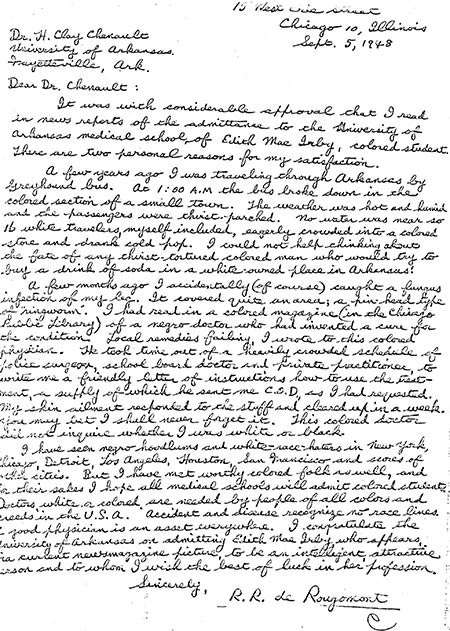 15 West street
Chicago 10, Illinois
Sept. 5, 1948
Dr. H. Clay Chenault
University of Arkansas
Fayetteville, Ark.
Dear Dr. Chenault :
It was with considerable approval that I read
in news reports of the admittance to the University of
Arkansas medical school, of Edith Mae Irby, colored student.
There are two personal reasons for my satisfaction.
A few years ago I was traveling through Arkansas by
Greyhound bus. At 1:00 A.M the bus broke down in the
colored section of a small town. The weather was hot and humid
and the passengers were thirst-parched. No water was near so
16 white travelers, myself included, eagerly crowded into a colored
store and drank cold pop. I could not help thinking about
the fate of any thirst-tortured colored man who would try to
buy a drink of soda in a white-owned place in Arkansas!
A few months ago I accidentally (of course) caught a fungus
infection of my leg. It covered quite an area; a pin-head type
of "ringworm". I had read in a colored magazine (in the Chicago
Public Library) of a negro doctor who had invented a cure for
the condition. Local remedies failing, I wrote to this colored
physician. He took time out of a heavily crowded schedule of
police surgeon, school board doctor and private practitioner, to
write me a friendly letter of instructions how to use the treat-
ment, a supply of which he sent me C.O.D, as I had requested.
My skin ailment responded to the stuff and cleared up in a week.
You may bet I shall never forget it. This colored doctor
did not inquire whether I was white or black.
I have seen negro-hoodlums and white-race-haters in New York,
Chicago, Detroit, Los Angeles, Houston, San Francisco and scores of
other cities. But I have met worthy colored folk as well, and
for their sakes I hope all medical schools will admit colored students.
Doctors, white or colored, are needed by people of all colors and
creeds in the U.S.A. Accident and disease recognize no race lines.
A good physician is an asset everywhere. I congratulate the
University of Arkansas on admitting Edith Mae Irby who appears,
via current newsmagazine picture, to be an intelligent, attractive
person and to whom I wish the best of luck in her profession.
Sincerely,
R. R. de Rougomont